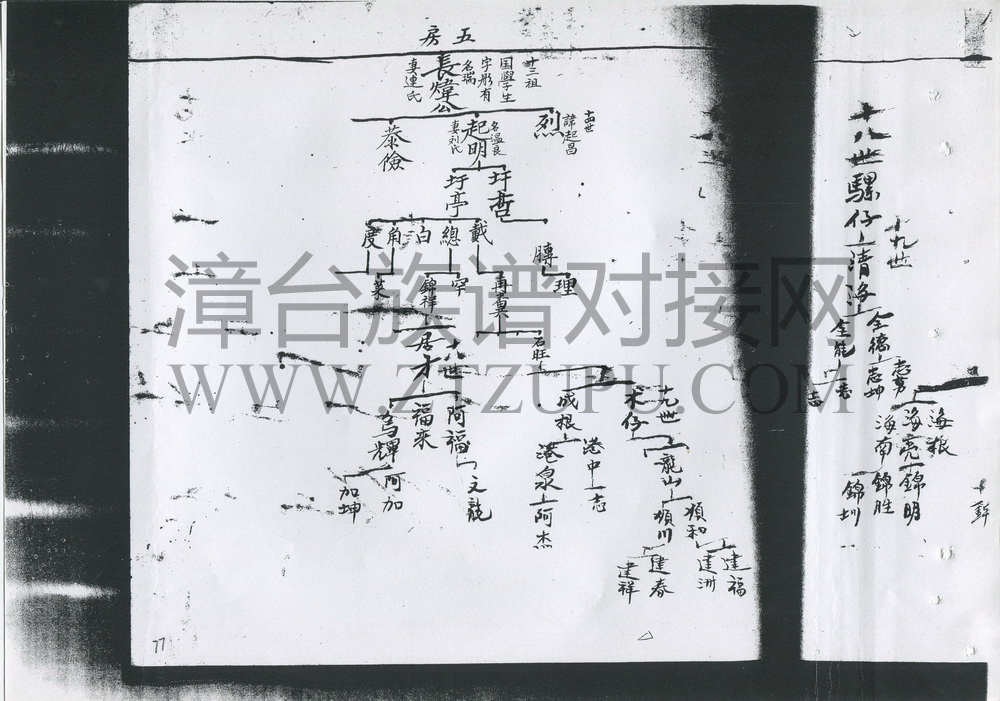 五房
十三祖
国學生
字彤有
名瑞
長煒公
妻連氏
十四世
諱起昌
烈
名温良
起明
妻利氏
恭儉
圩哲
圩亭
戴
總
泊
角
度
膊
理
再
宰
錦祥
菜
石旺
十八世
居才
十九世
木仔
成根
阿福
福來
烏輝
龍山
港中一志
港泉
阿杰
文龍
阿加
加坤
順和
順川
建福
建洲
建春
建祥
77
十八世騾仔
清海
十九世
全德
全能
志勇
志坤
志
海粮
海亮
海南
錦明
錦胜
錦圳
漳台族谱对接网
WWW.ZTZUPU.COM